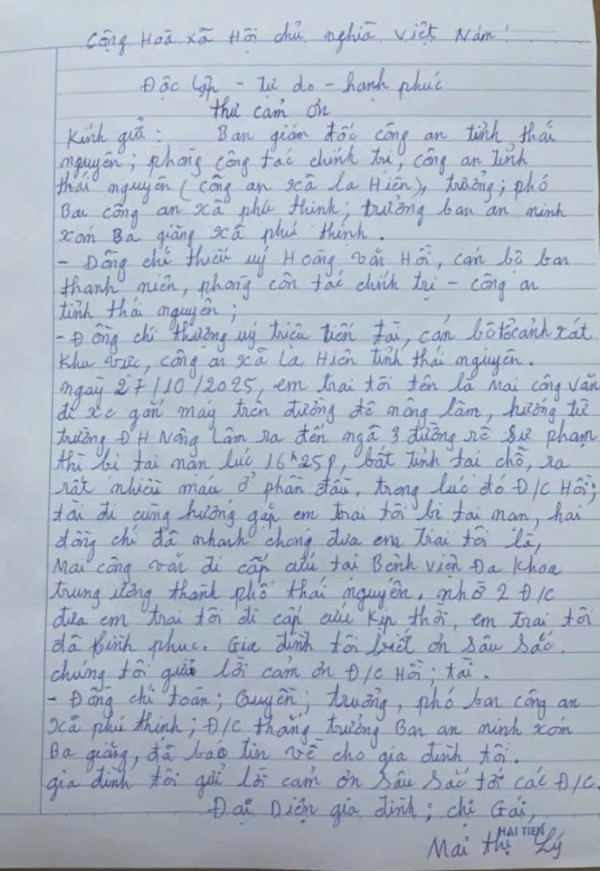 Cộng Hoà xã Hội chủ nghĩa Việt Nam!
Độc lập - tự do - hạnh phúc
thư cảm ơn
Kính gửi: Ban giám đốc công an tỉnh thái
nguyên; phòng công tác chính trị, công an tỉnh
thái nguyên (công an xã la Hiên), trưởng; phó
Ban công an xã phú thịnh; trưởng ban an ninh
xóm Ba giăng xã phú thịnh.
- Đồng chí thiếu uý Hoàng văn Hồi, cán bộ ban
thanh niên, phòng côn tác chính trị - công an
tỉnh thái nguyên;
- Đồng chí thượng uý triệu tiến tài, cán bộ tổ cảnh xát
khu vực, công an xã La Hiên tỉnh thái nguyên.
ngày 27/10/2025, em trai tôi tên là Mai công văn
đi xe gắn máy trên đường đê nông lâm, hướng từ
trường ĐH Nông Lâm ra đến ngã 3 đường rẽ sư phạm
thì bị tai nạn lúc 16h25p, bất tỉnh tại chỗ, ra
rất nhiều máu ở phần đầu, trong lúc đó Đ/C Hồi;
tài đi cùng hướng gặp em trai tôi bị tai nạn, hai
đồng chí đã nhanh chóng đưa em trai tôi là,
Mai công văn đi cấp cứu tại Bệnh viện Đa khoa
trung ương thành phố thái nguyên. nhờ 2 Đ/C
đưa em trai tôi đi cấp cứu kịp thời, em trai tôi
đã bình phục. Gia đình tôi biết ơn sâu sắc.
chúng tôi gửi lời cảm ơn Đ/C Hồi; tài.
- Đồng chí toán; Quyền; trưởng, phó ban công an
xã phú thịnh; Đ/C thắng trưởng Ban an ninh xóm
Ba giăng, đã bao tin về cho gia đình tôi.
gia đình tôi gửi lời cảm ơn sâu sắc tới các Đ/C.
Đại Diện gia đình; chị Gái,
MAI TIẾN
Mai thị Lý